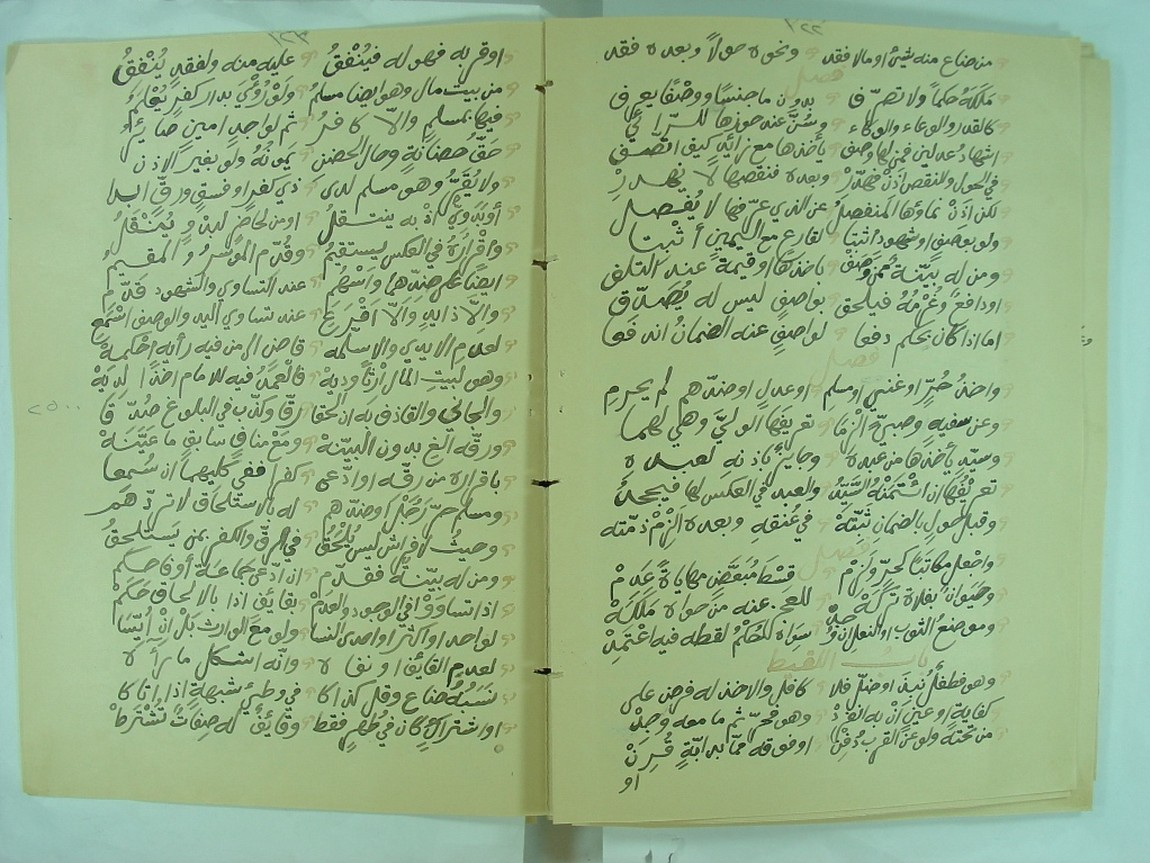 ١٢٢
من ضاع منه شئ او مالا فقد ونحوه حولاً وبعده فقد
فصل
مَلَكَهُ حكماً ولا تصرّف بدون ما جنسًا ووصفًا يعرف
كالقدر والوعاء والوكاء وسُنَّ عند حوزها للرائي
اشهادُ عدلين فمن لها وصف يأخذها مع زائد كيف اتصف
في الحول والنقص اذن فهدر وبعده فنقصها لا تهدر
لكن اذن نماؤها المنفصل عن الذي عرّفها لا يُفصل
ولو بوصف او شهود أثبتا لقارع مع اليمين أثبتا
ومن له بيّنة يأخذها او قيمة عند التلف
او دافع وغُرْمُهُ فيلحق بواصف ليس له يُصَدّق
اما اذا كان بحكم دفعا لواصف عنه الضمانُ اندفعا
فصل
واخذُ حُرّ او غني او مسلم او عدل او ضدّهم لم يحرم
وعن سفيه وصبيّ الزما تعريفَها الوليّ وهي لهما
وسيّد يأخذها من عبده وجايز باذنه لعبده
تعريفُها ان ائتمنه السيّد والعبد في العكس لها فيجحد
وقبل حول بالضمان ثبته في عُنقه وبعده الزم ذمته
فصل
واجعل مكاتبًا كحرّ ولزم قسط مُبَعّض مهاياة عدم
وحيوان بفلاة تركه للعجز عنه من حواه مَلَكَهْ
وموضع الثوب او النعل ان وُجد سواه كالحُكْمُ لقطه فيه اعْتمِدْ
باب اللقيط
وهو فطفل نُبذ او ضلّ فلا كافل والاخذ له فرض على
كفاية او عين ان به انفرد وهو فحرّ ثم ما معه وجد
من تحته ولو عن القرب دُفن او فوقه ممّا بدابّةٍ قُرن
او
١٢٣
او قربه فهو له فيُنْفَقُ عليه منه ولفقدٍ يُنْفَقُ
من بيت مال وهو ايضا مسلمُ ولَوْ رُؤْيَ بدار كفرٍ يُعْلَمُ
فيها بمسلم والّا كافرُ ثم لواجدٍ امين صائرُ
حقّ حضانةٍ وحال الحضن يمونُهُ ولو بغير الاذن
ولا يُقَرّ وهو مسلم لدى ذي كفرٍ او فسقٍ ورقّ ابدا
أو بَدَويّ اذ به ينتقلُ او من لحاضر لبدْوٍ يُنقَلُ
وأقْرارُهُ في العكس يستقيمُ وقُدّم الموسرُ والمقيمُ
ايضًا على ضدّهما وأسْهُمِ عند التساوي والشهود قدّم
والّا ذا يدٍ والّا اقْرعِ عند تساوي اليد والوصف اسْمَعِ
لعدم الايدي والّا سلمه قاض الى من فيه رأيه احْكمه
وهو لبيت المال أرثا وديه فالعمدُ فيه للامام اخذا لديه
والجاني والقاذف له ان لحقا رقّا وكذّب في البلوغ صُدّقا
ورقّه الغ بدون البيّنه ومَعْ منافٍ سابق ما عيّنَهْ
باقراره من رقّه او ادّعى كفرا ففي كليهما ان سُمعا
ومسلم حرّ رَجُل او ضدّهم له بالاستلحاق لا تردّهم
وحيثُ لا فراش ليس يُلْحَقُ في الرقّ والكفر بمن يستلحقُ
ومن له بيّنة فقدّم ان ادّعى جماعة أو فاحكم
اذا تساووا في الوجود والعدم بقائف اذا بالالحاق حَكمْ
لواحد او اكثر او احدى النسا ولو مع الوارث بل ان أيّسا
لعدم القائف او نفاه وانّه اشكل ما رآه
نَسَبُهُ ضاع وقل كذا كا في وطئ شبهةٍ اذا اتاكا
او اشتراك كان في طُهرٍ فقط وقائف له صفات تُشْترط
٢٥٠٠